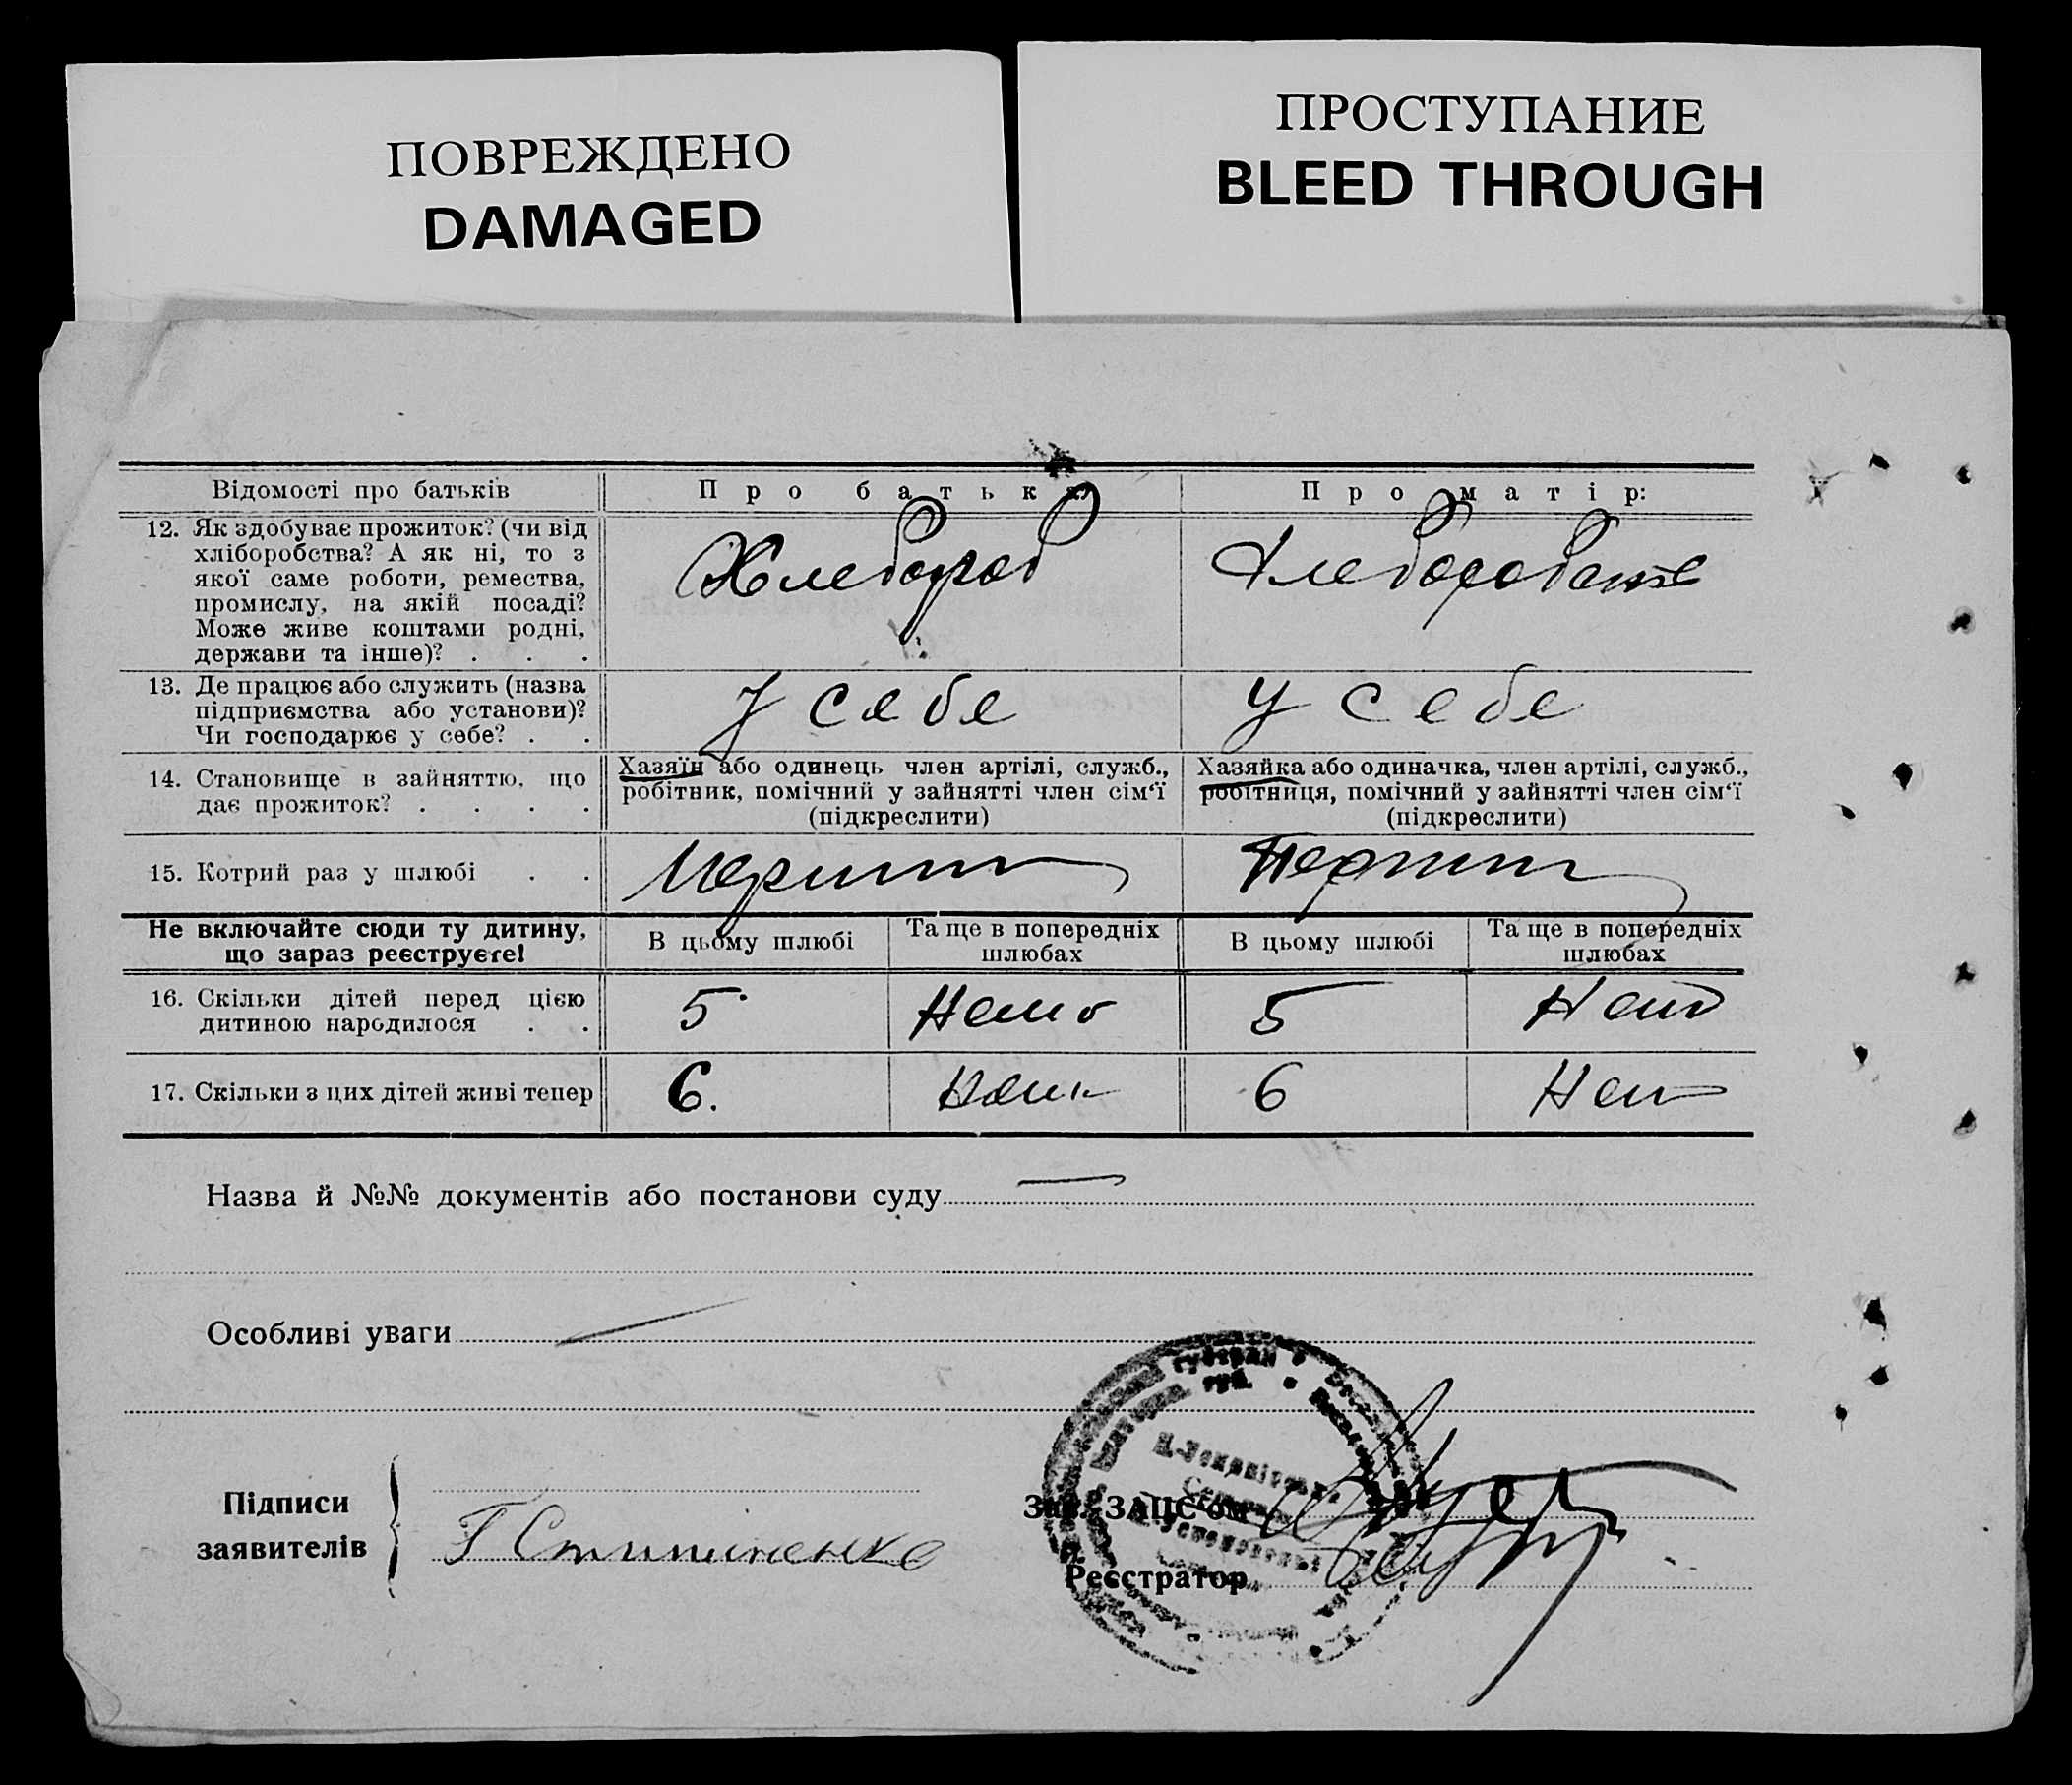 ПОВРЕЖДЕНО
DAMAGED
ПРОСТУПАНИЕ
BLEED THROUGH
Відомості про батьків
Про батька
Про матір:
12. Як здобуває прожиток? (чи від
хліборобства? А як ні, то з
якої саме роботи, ремества,
промислу, на якій посаді?
Може живе коштами родні,
держави та інше)? . . .
Хлебороб
13. Де працює або служить (назва
підприємства або установи)?
Чи господарює у себе? . .
У себе
У себе
14. Становище в зайняттю, що
дає прожиток? . . . .
Хазяїн або одинець член артілі, служб.,
робітник, помічний у зайнятті член сім‘ї
(підкреслити)
Хазяйка або одиначка, член артілі, служб.,
робітниця, помічний у зайнятті член сім‘ї
(підкреслити)
15. Котрий раз у шлюбі . .
Не включайте сюди ту дитину,
що зараз реєструєте!
В цьому шлюбі
Та ще в попередніх
шлюбах
В цьому шлюбі
Та ще в попередніх
шлюбах
16. Скільки дітей перед цією
дитиною народилося . .
5
5
17. Скільки з цих дітей живі тепер
6.
6
Назва й №№ документів або постанови суду
Особливі уваги
Підписи
заявителів
Зав. ЗАПС‘ом
Реєстратор